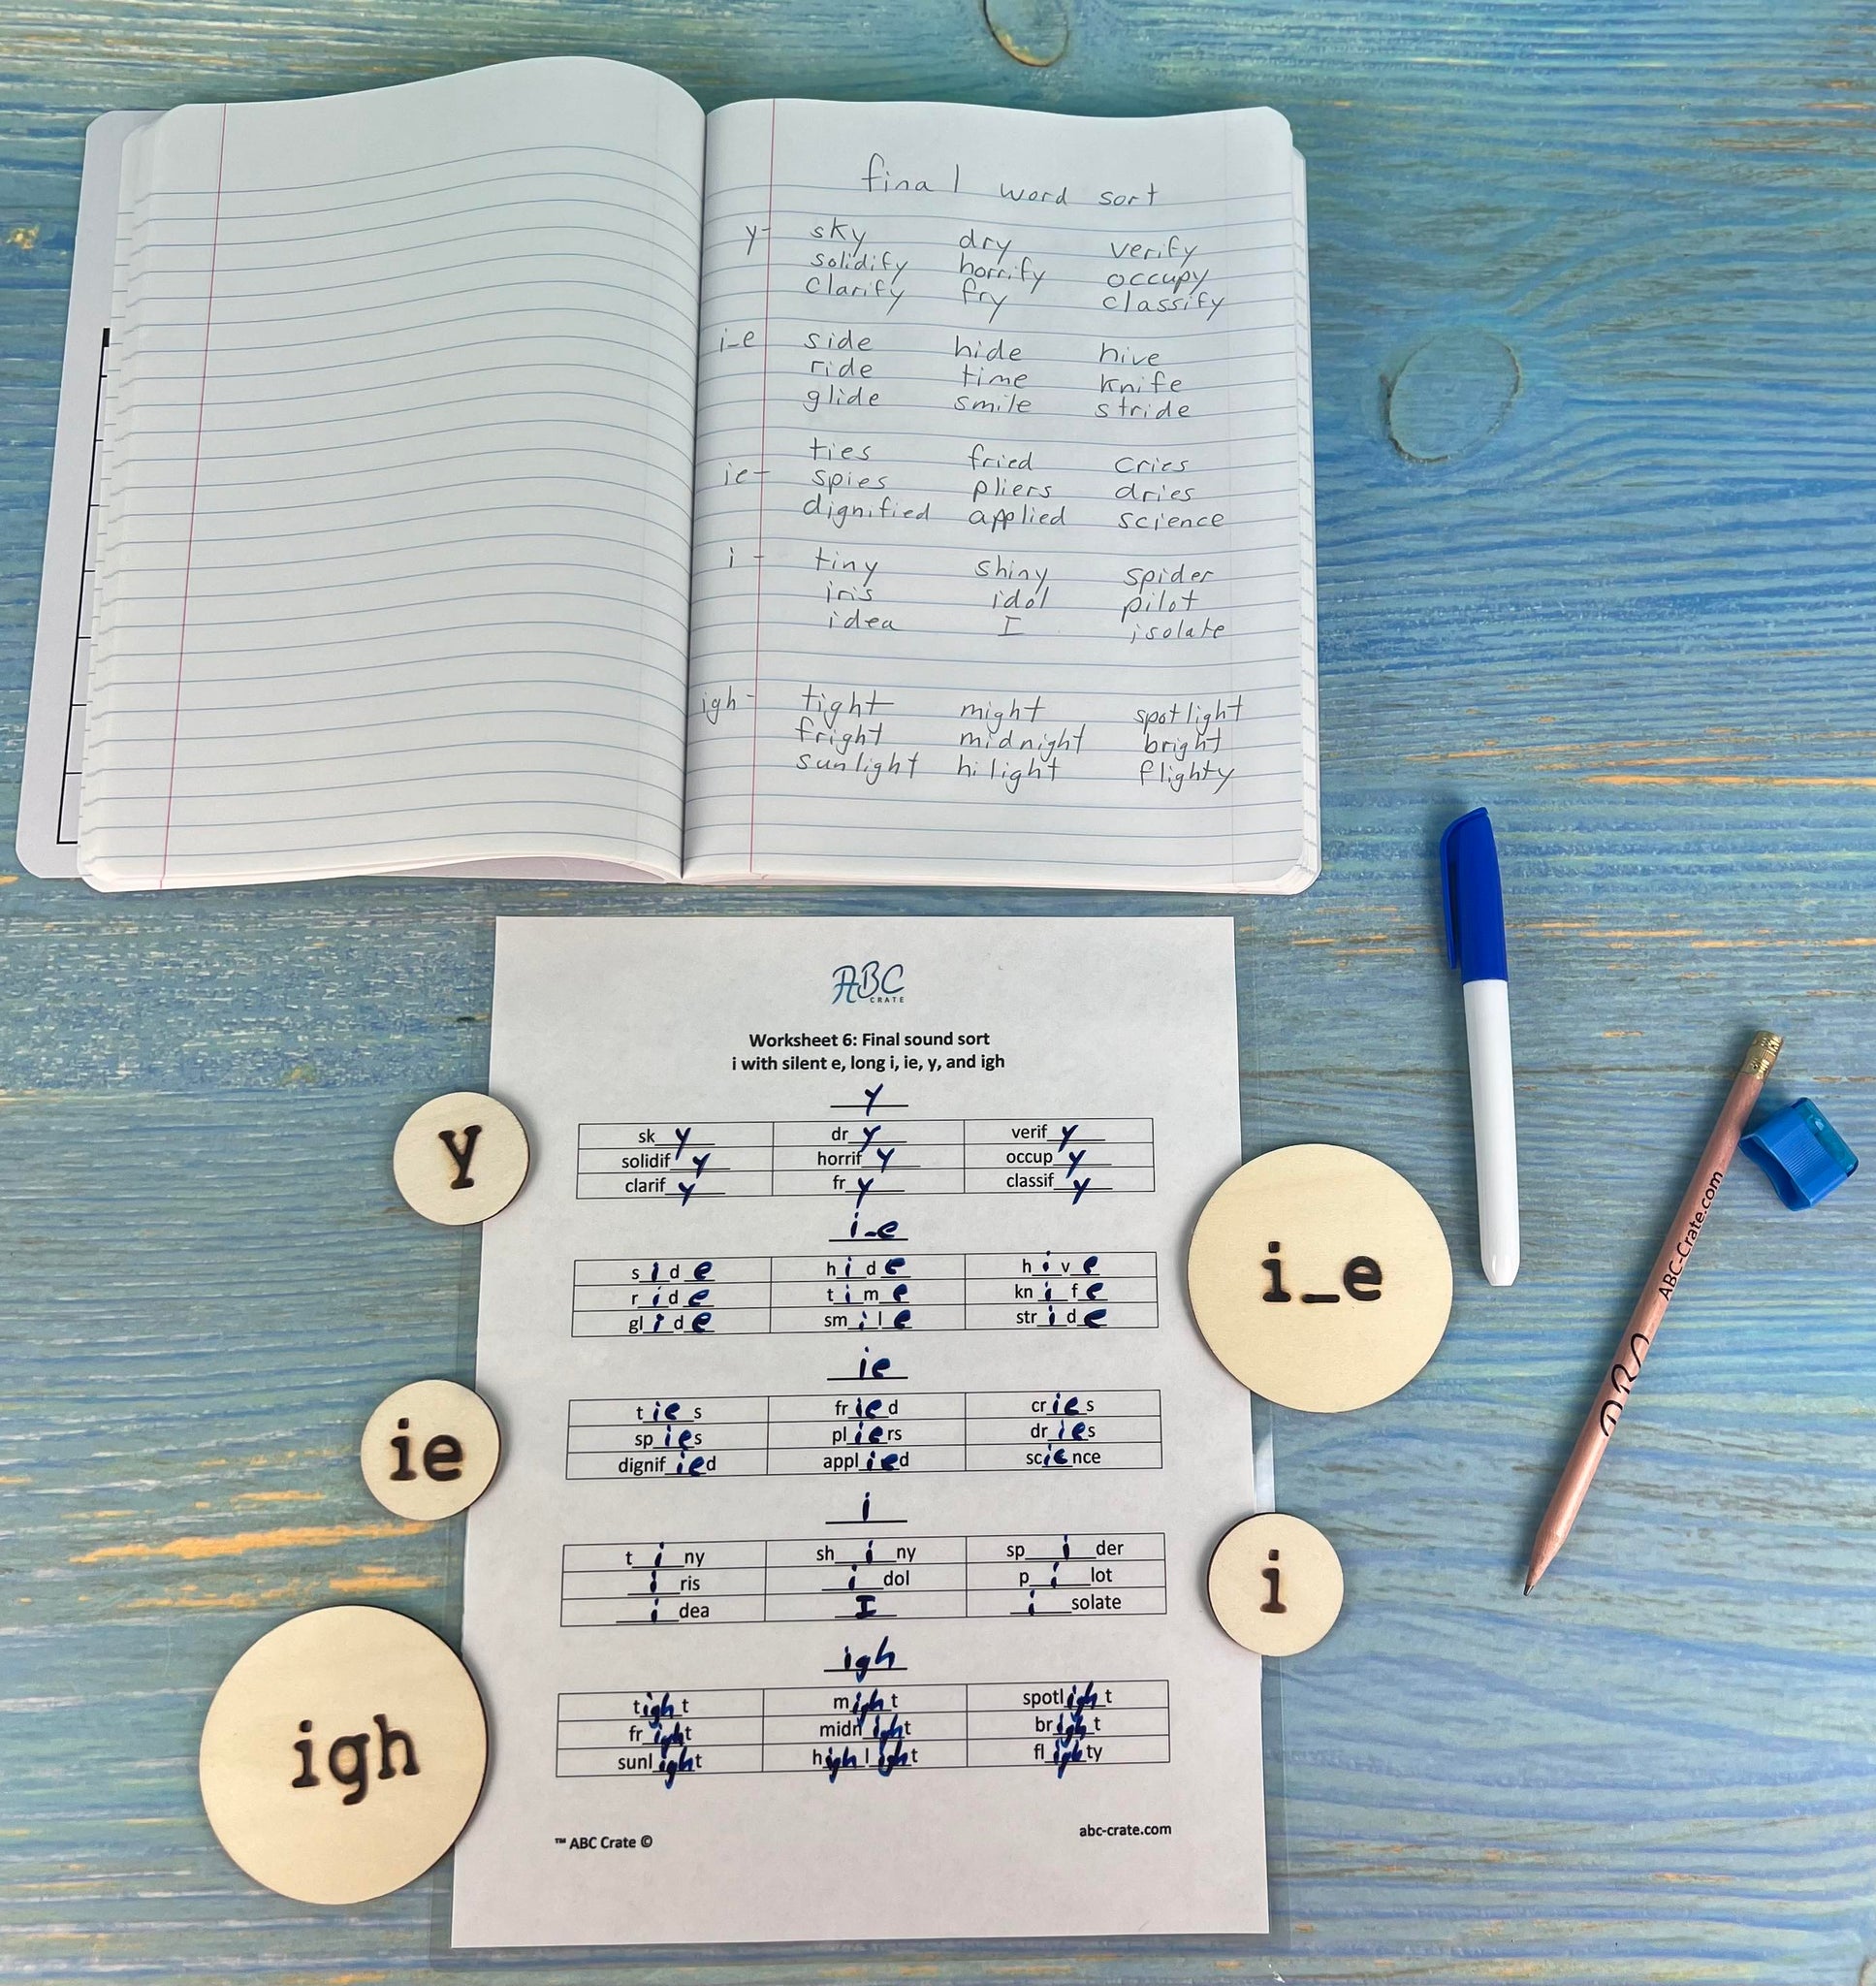 final word sort
y- sky dry verify
solidify horrify occupy
clarify fry classify
i-e side hide hive
ride time knife
glide smile stride
ties fried cries
ie- spies pliers dries
dignified applied science
i - tiny shiny spider
iris idol pilot
idea I isolate
igh- tight might spotlight
fright midnight bright
sunlight hilight flighty
ABC
CRATE
Worksheet 6: Final sound sort
i with silent e, long i, ie, y, and igh
y
sky dry verify
solidify horrify occupy
clarify fry classify
i-e
side hide hive
ride time knife
glide smile stride
ie
ties fried cries
spies pliers dries
dignified applied science
i
tiny shiny spider
iris idol pilot
idea I isolate
igh
tight might spotlight
fright midnight bright
sunlight highlight flighty
™ ABC Crate © abc-crate.com
y
i_e
ie
i
igh
ABC-Crate.com